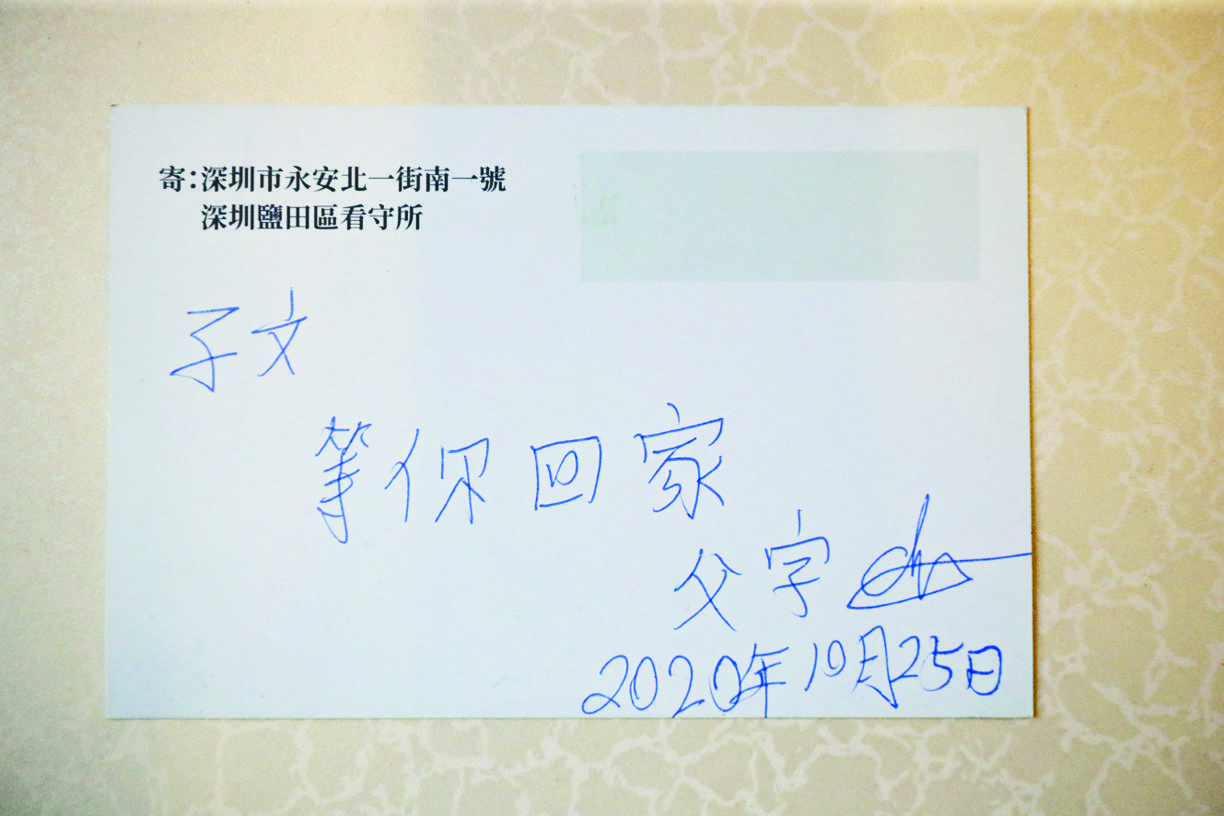 寄：深圳市永安北一街南一號
深圳鹽田區看守所
子文
等你回家
父字
2020年10月25日